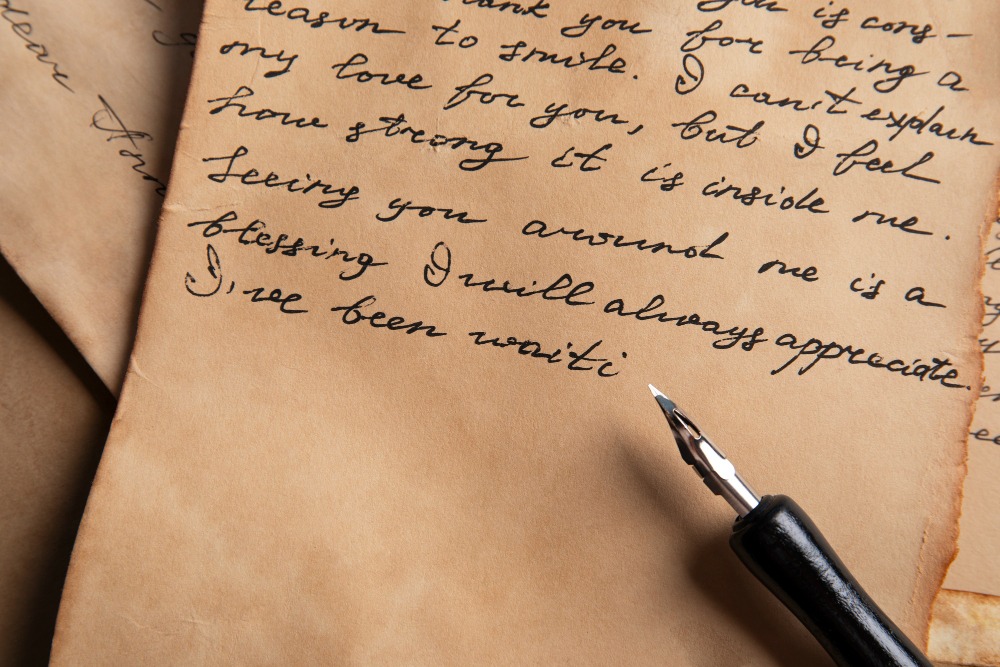 dear
Ann
you is cons-
thank you for being a
reason to smile. I can't explain
my love for you, but I feel
how strong it is inside me.
Seeing you around me is a
blessing I will always appreciate.
I've been waiti